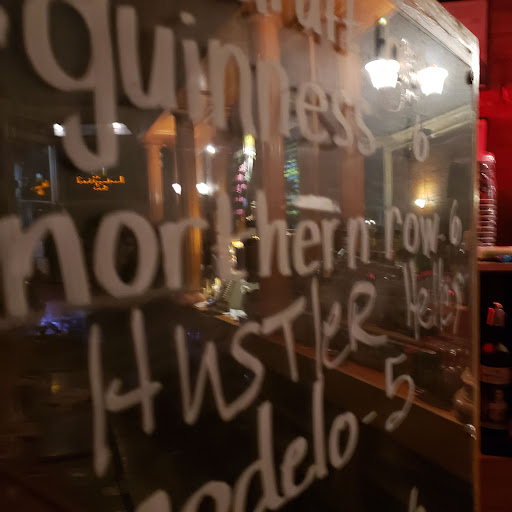 guinness - 6
northern row - 6
HUSTLER Heller
modelo - 5